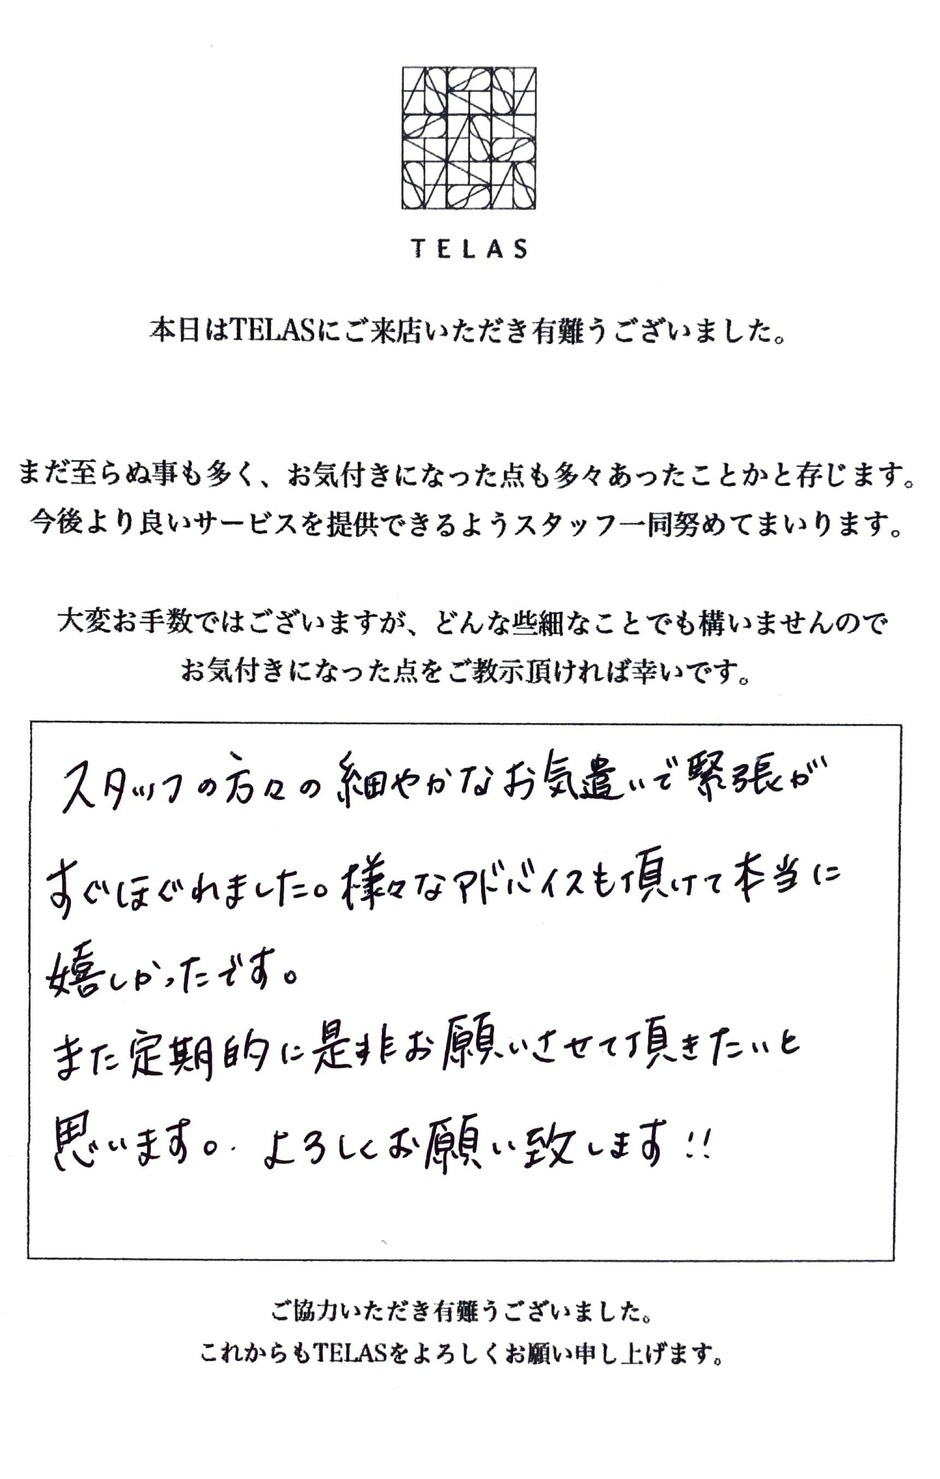 TELAS
本日はTELASにご来店いただき有難うございました。
まだ至らぬ事も多く、お気付きになった点も多々あったことかと存じます。
今後より良いサービスを提供できるようスタッフ一同努めてまいります。
大変お手数ではございますが、どんな些細なことでも構いませんので
お気付きになった点をご教示頂ければ幸いです。
スタッフの方々の細やかなお気遣いで緊張が
すぐほぐれました。様々なアドバイスも頂けて本当に
嬉しかったです。
また定期的に是非お願いさせて頂きたいと
思います。よろしくお願い致します!!
ご協力いただき有難うございました。
これからもTELASをよろしくお願い申し上げます。